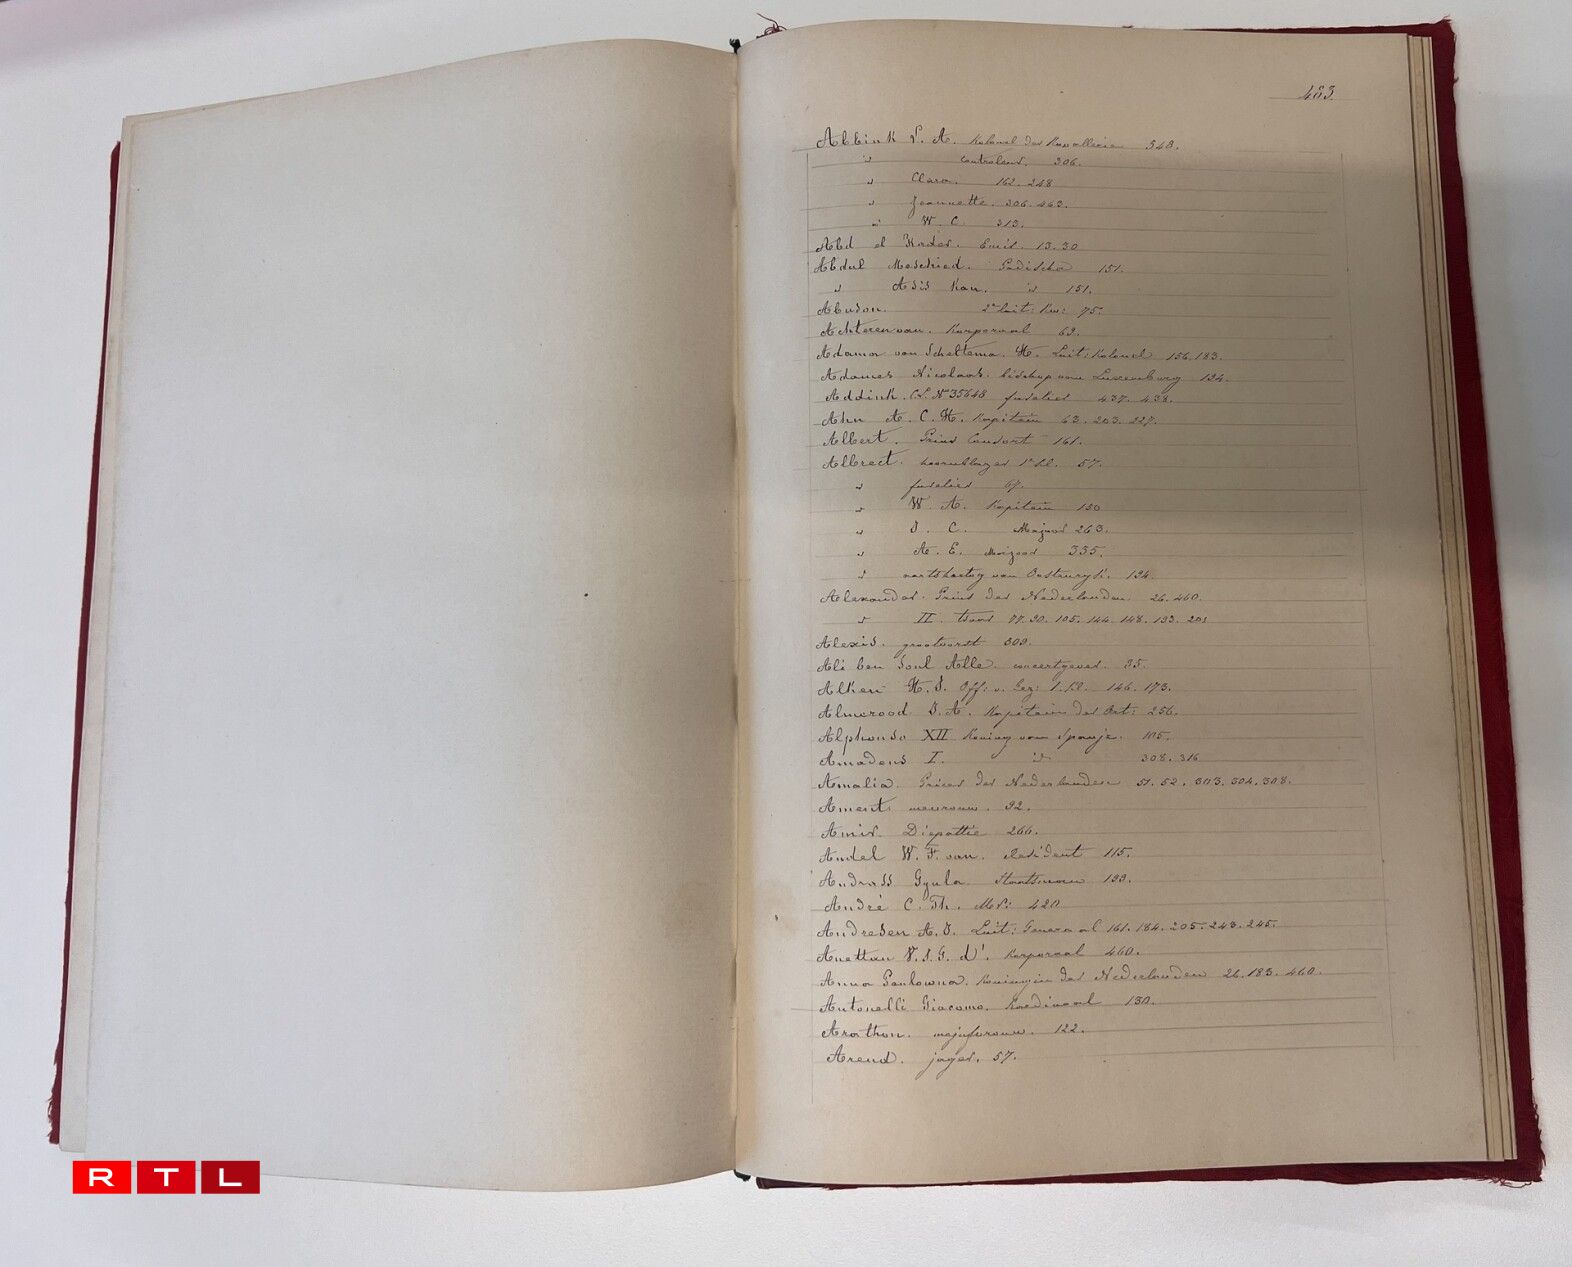 483
Abbink V. A. Kolonel der Kavallerie 348.
" controleur. 306.
" Clara. 162. 248
" Jeannette. 306. 463.
" W. C. 313.
Abd el Kader. Emir. 13. 30
Abdul Meschied. Padischa 151.
" Asis Kan. id 151.
Abuson. 2e luit: Kw: 75.
Achteren van. Korporaal 63.
Adama van Scheltema. H. Luit: Kolonel 156. 183.
Adames Nicolaas. bisschop van Luxemburg 134.
Addink. C.S. No 35648 fuselier 437. 438.
Ahn A. C. H. Kapitein 63. 203. 227.
Albert. Prins Consort 161.
Albrect. hoornblazer 1e kl. 57.
" fuselier 67.
" W. A. Kapitein 150
" J. C. Majoor 263.
" A. E. Majoor 335.
" aartshertog van Oostenryk. 134.
Alexander. Prins der Nederlanden. 26. 460.
" II. tsaar 77. 90. 105. 144. 148. 193. 201
Alexis. grootvorst 309.
Ali ben Soul Alle. concertgever. 35.
Alken H. J. Off: v. Gez: 1. kl. 146. 173.
Almerood J. A. Kapitein der Art: 256.
Alphonso XII Koning van Spanje. 105.
Amadeus I. id 308. 316
Amalia. Prinses der Nederlanden 51. 52. 303. 304. 308.
Ament. mevrouw. 92.
Amir. Diepattie 266.
Andel W. F. van. Resident 115.
Andrass Gyula. Staatsman 193.
André C. Th. Mr: 420
Andresen A. J. Luit: Generaal 161. 184. 205. 243. 245.
Anettan V. J. G. d'. Korporaal 460.
Anna Paulowna. Koningin der Nederlanden 26. 183. 460.
Antonelli Giacomo. Kardinaal 130.
Arathon. mejufvrouw. 122.
Arend. jager. 57.
RTL